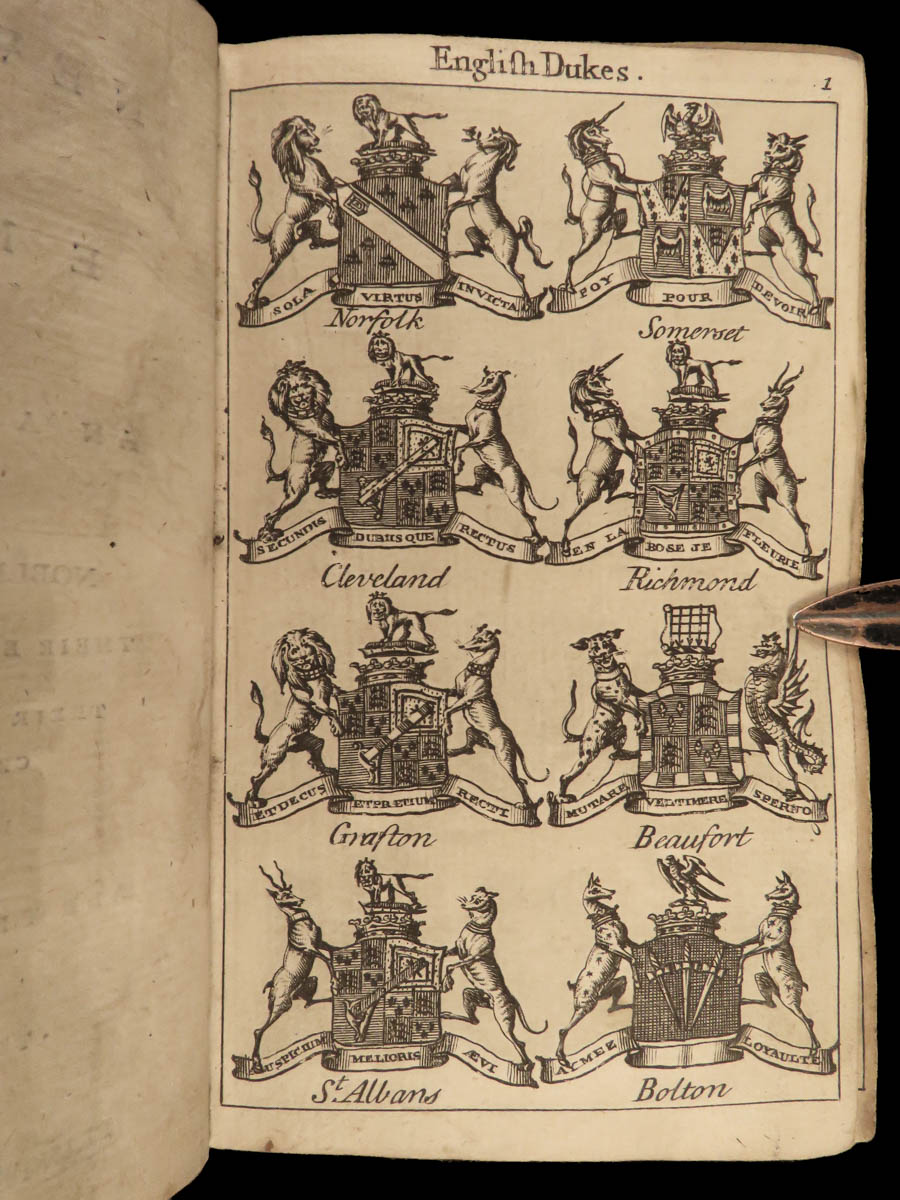 Engliſh Dukes.
1
SOLA VIRTUS INVICTA
Norfolk
FOY POUR DEVOIR
Somerset
SECUNDIS DUBIISQUE RECTUS
Cleveland
EN LA ROSE JE FLEURIE
Richmond
ET DECUS ET PRÆTIUM RECTI
Grafton
MUTARE VEL TIMERE SPERNO
Beaufort
AUSPICIUM MELIORIS ÆVI
St. Albans
AYMEZ LOYAULTE
Bolton